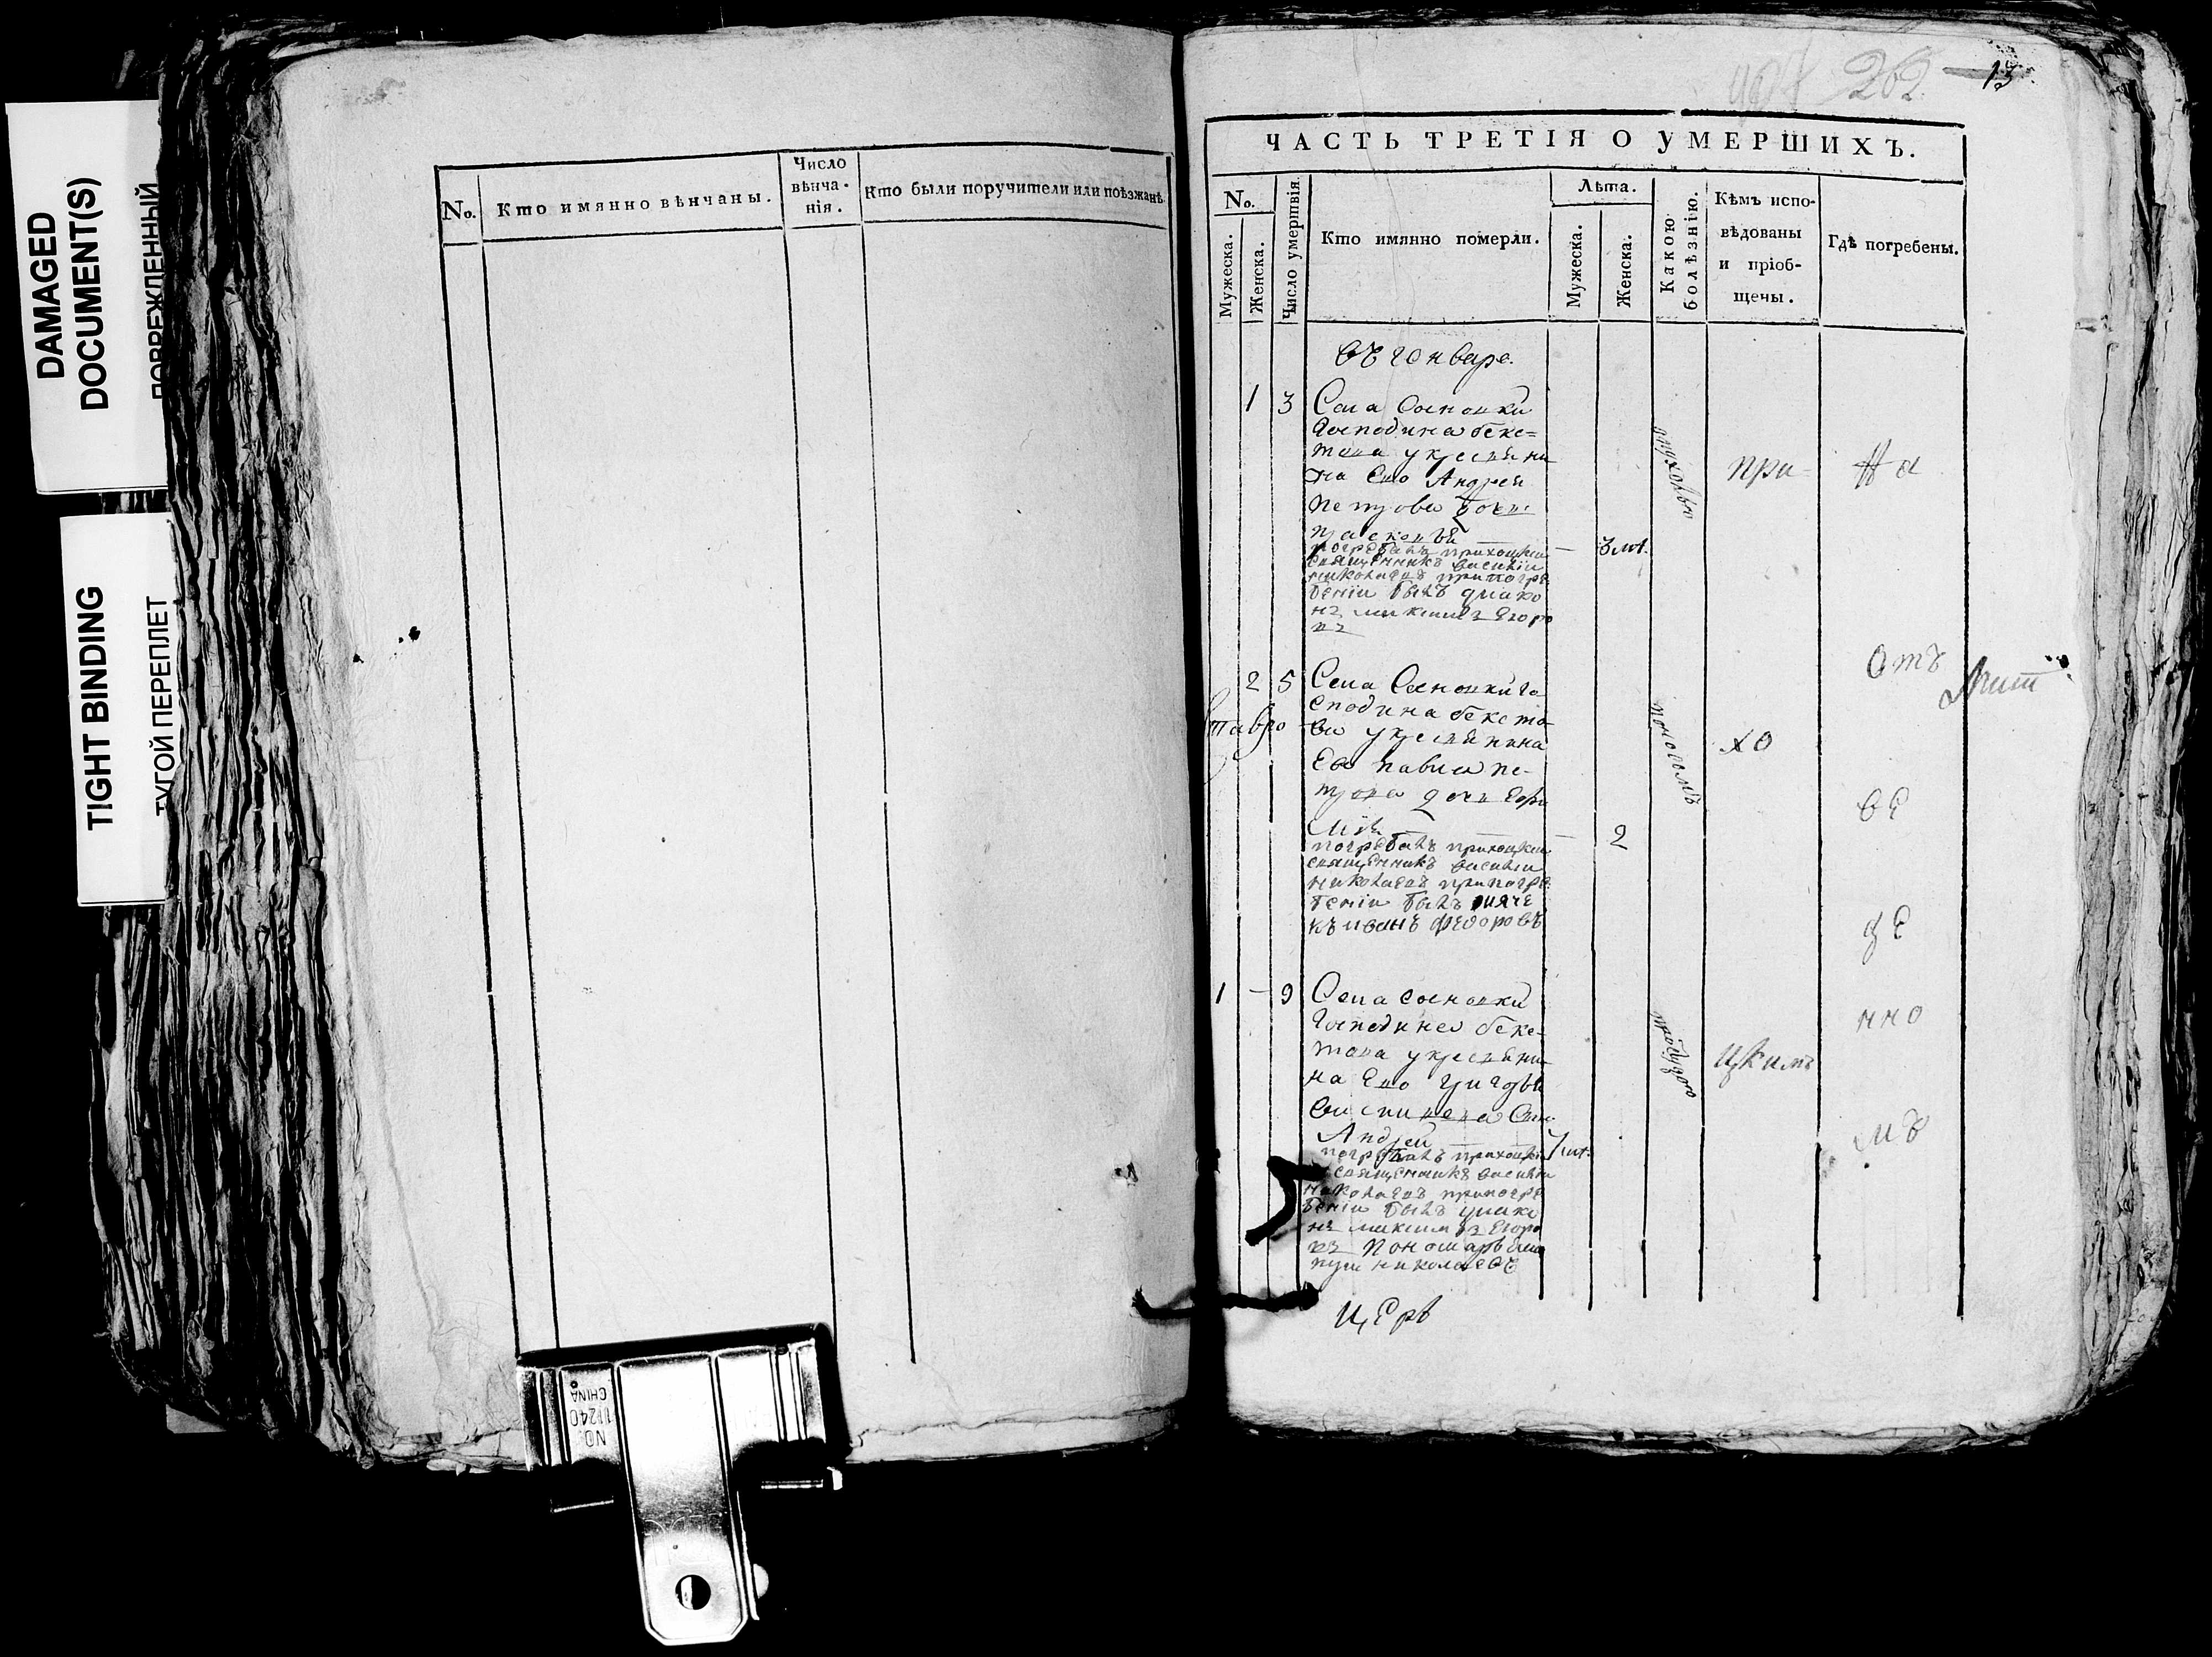 DAMAGED
DOCUMENT(S)
ПОВРЕЖДЕННЫЙ
TIGHT BINDING
ТУГОЙ ПЕРЕПЛЕТ
No.
Кто имянно вѣнчаны.
Число
вѣнча-
нія.
Кто были поручители или поѣзжанѣ
262
13
ЧАСТЬ ТРЕТІЯ О УМЕРШИХЪ.
No.
Мужеска.
Женска.
Число умертвія.
Кто имянно померли.
Лѣта.
Мужеска.
Женска.
Какою
болѣзнію.
Кѣмъ испо-
вѣдованы
и пріоб-
щены.
Гдѣ погребены.
въ генваре
1 3 Села Сосновки
Господина беке-
това у крестьяни
на Ево Андрея
Петрова дочь
Прасковья
погребалъ приходцкии
священникъ василии
николаевъ припогре
бении былъ диако
нъ максимъ Егоро
въ
3 лѣт.
при-
На
2 5 Села Сосновки го
сподина бекето
ва у крестьянина
Ево Павла пе-
трова дочь
погребалъ приходцкии
священникъ василии
николаевъ припогре
бении былъ дьяче
къ иванъ федоровъ
2
хо
отъ
ве
де
1 - 9 Села Сосновки
Господина беке-
това у крестьяни
на Ево Григорья
сынъ
Андреи
погребалъ приходцкии
священникъ василии
николаевъ припогре
бении былъ диако
нъ максимъ Егоро
въ Пономарь
николаевъ
7 лѣт.
цкимъ
нно
мъ
церк
NO.
11240
CHINA